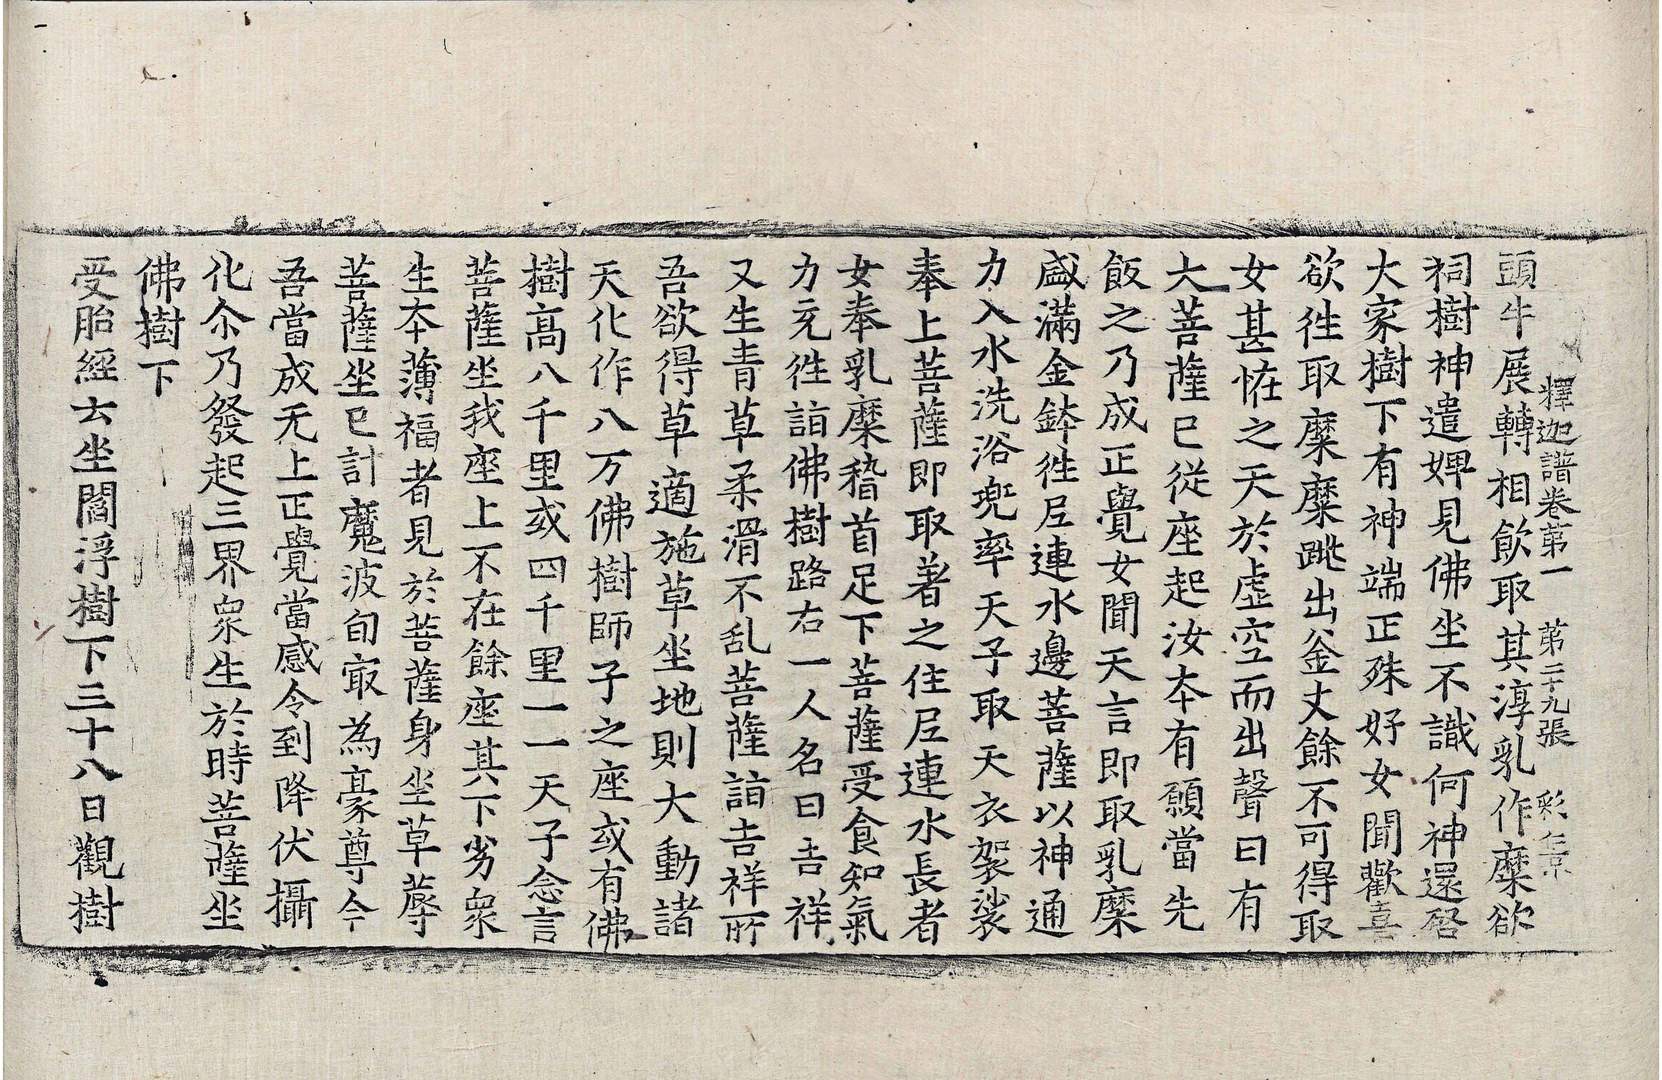 釋迦譜卷第一 第二十九張 彩
頭牛展轉相飲取其淳乳作糜欲
祠樹神遣婢見佛坐不識何神還啓
大家樹下有神端正殊好女聞歡喜
欲徃取糜糜跳出釜丈餘不可得取
女甚恠之天於虛空而出聲曰有
大菩薩已從座起汝夲有願當先
飯之乃成正覺女聞天言即取乳糜
盛滿金鉢徃𡰱連水邊菩薩以神通
力入水洗浴兜率天子取天衣袈裟
奉上菩薩即取著之住𡰱連水長者
女奉乳糜稽首足下菩薩受食知氣
力充徃詣佛樹路右一人名曰吉祥
又生青草柔滑不乱菩薩詣吉祥所
吾欲得草適施草坐地則大動諸
天化作八万佛樹師子之座或有佛
樹高八千里或四千里一一天子念言
菩薩坐我座上不在餘座其下劣衆
生夲薄福者見於菩薩身坐草蓐
菩薩坐已計魔波旬㝡為豪尊今
吾當成无上正覺當感令到降伏攝
化尒乃發起三界衆生於時菩薩坐
佛樹下
受胎經云坐閻浮樹下三十八日觀樹